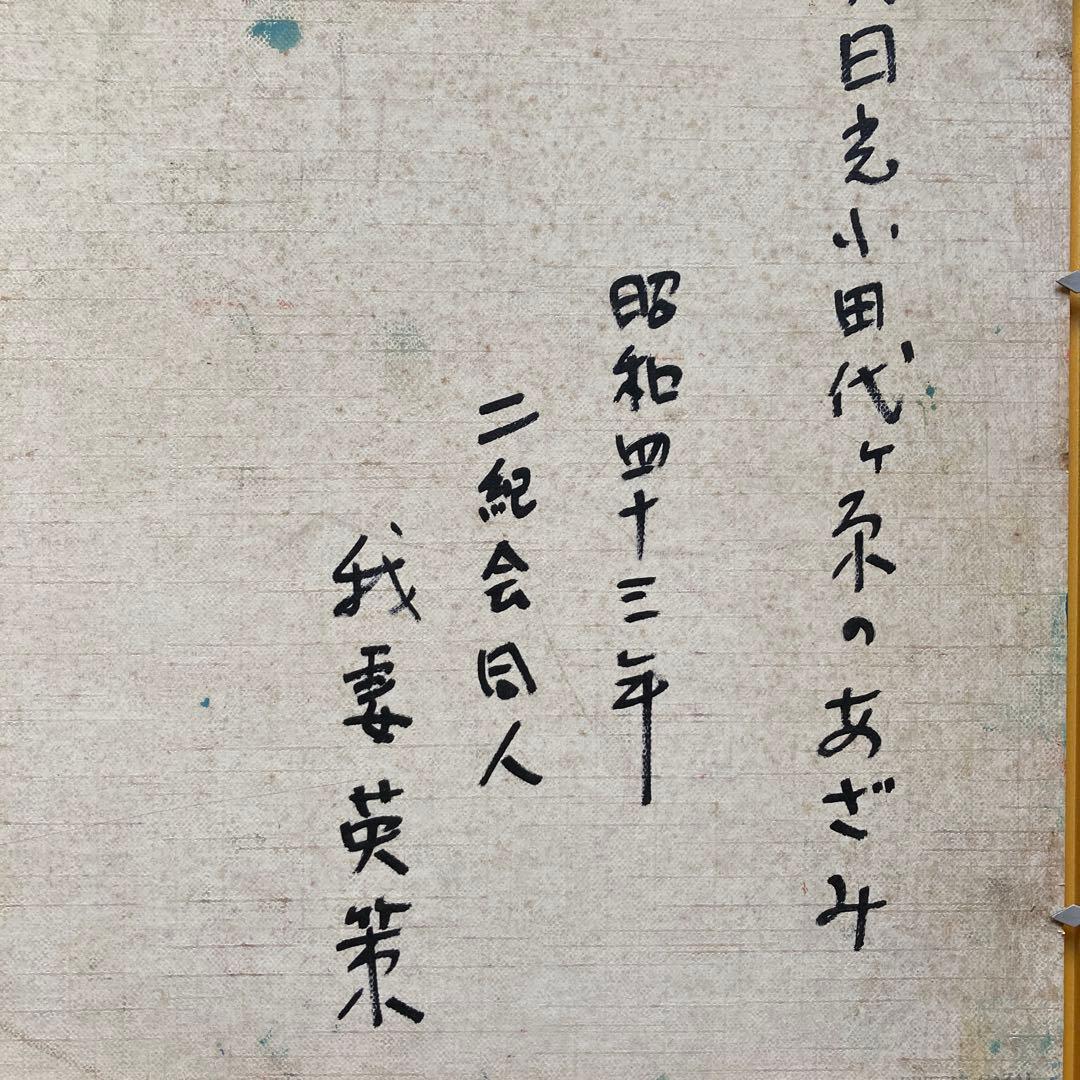 日光小田代ヶ原のあざみ
昭和四十三年
二紀会同人
我妻英策